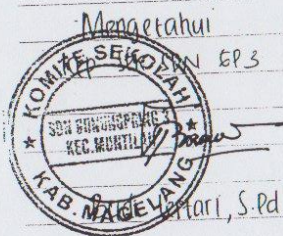 Mengetahui
SDN GP3
KOMITE SEKOLAH
SDN GUNUNGPRING 3
KEC. MUNTILAN
KAB. MAGELANG
S.Pd